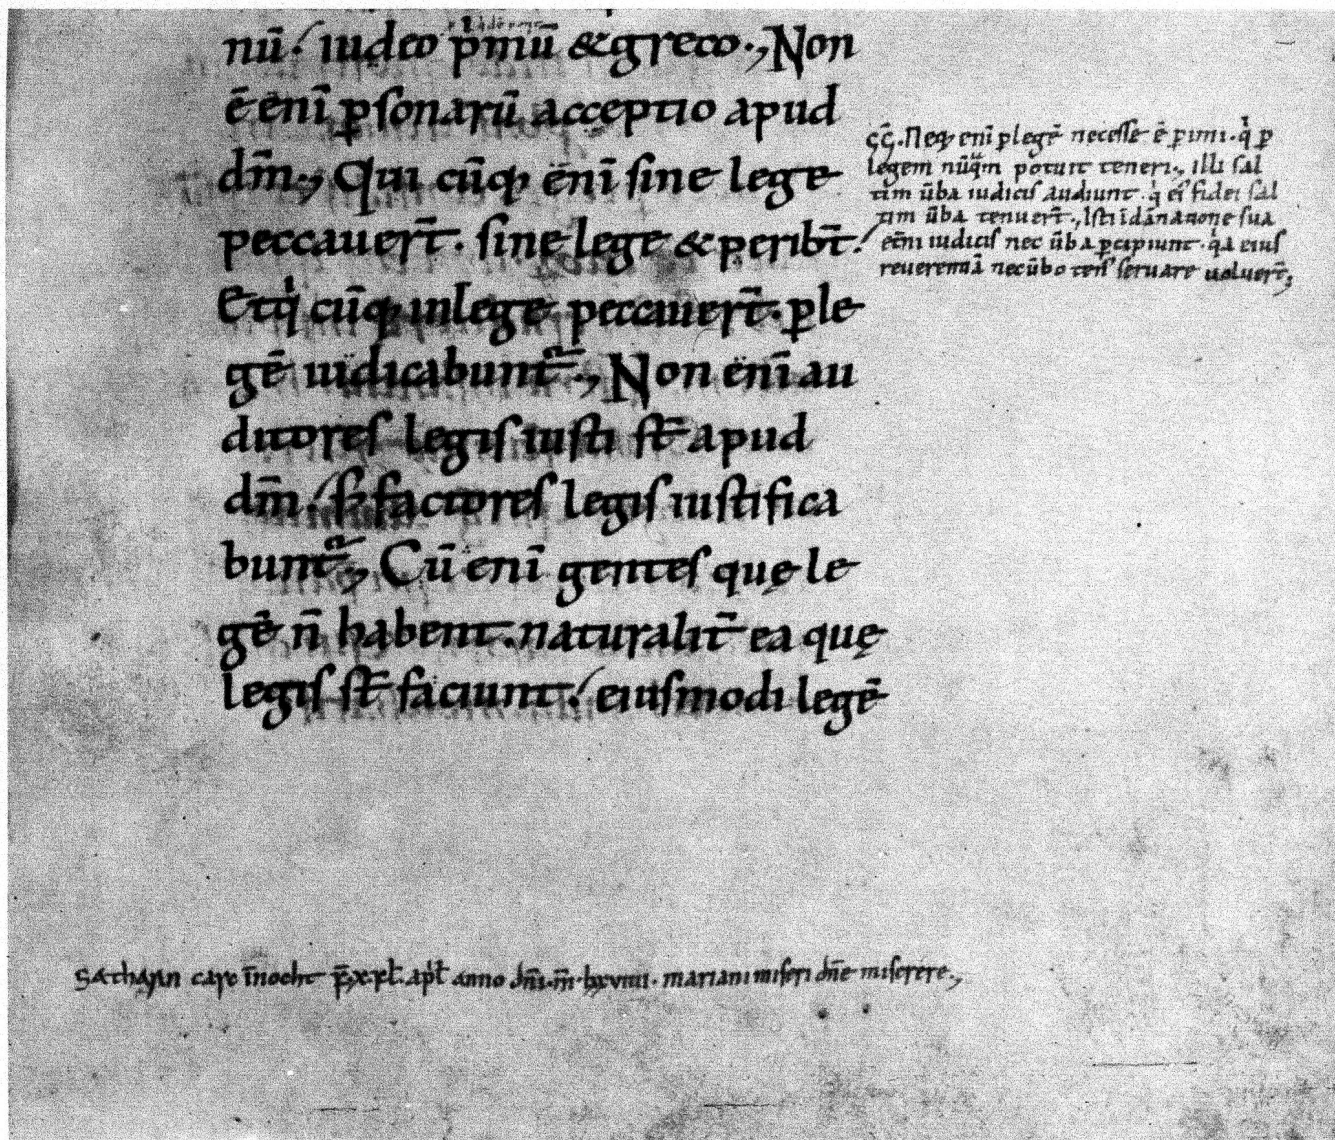 nū. iudeo pmū & greco., Non
ē enī psonarū acceptio apud
dm̄., Qui cūq; enī sine lege
peccauerт̄. sine lege & peribт̄.
Et q̇ cūq; inlege peccauerт̄. ple
gē iudicabunt., Non enī au
ditores legis iusti sт̄ apud
dm̄. sʒ factores legis iustifica
bunt., Cū enī gentes quę le
gē n̄ habent. naturaliт̄ ea quę
legis sт̄ faciunt. eiusmodi legē
Neq; enī plegē necesse ē pimi. q̇ p
legem nūq̄m potuit teneri., illi sal
tim ūba iudicis audiunt. q̇ ei' fidei sal
tim ūba tenuerт̄., Isti ī dānatione sua
etn̄i iudicis nec ūba pcipiunt. q̇a eius
reuerentiā nec ūbo ten' seruare uoluerт̄.,
Sathajrn caṛc īnocht
anno dn̄i. m̄. lxviiii. mariani miseri dn̄e miserere.,